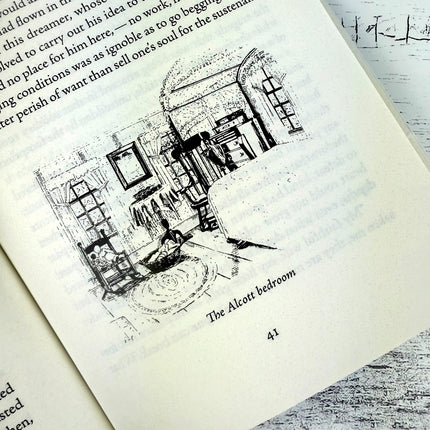 would
had flown in th
this dreamer, whose
olved to carry out his idea to
d no place for him here,—no work,
ng conditions was as ignoble as to go begging
ter perish of want than sell one's soul for the sustena
The Alcott bedroom
41
ed
sted
hen,